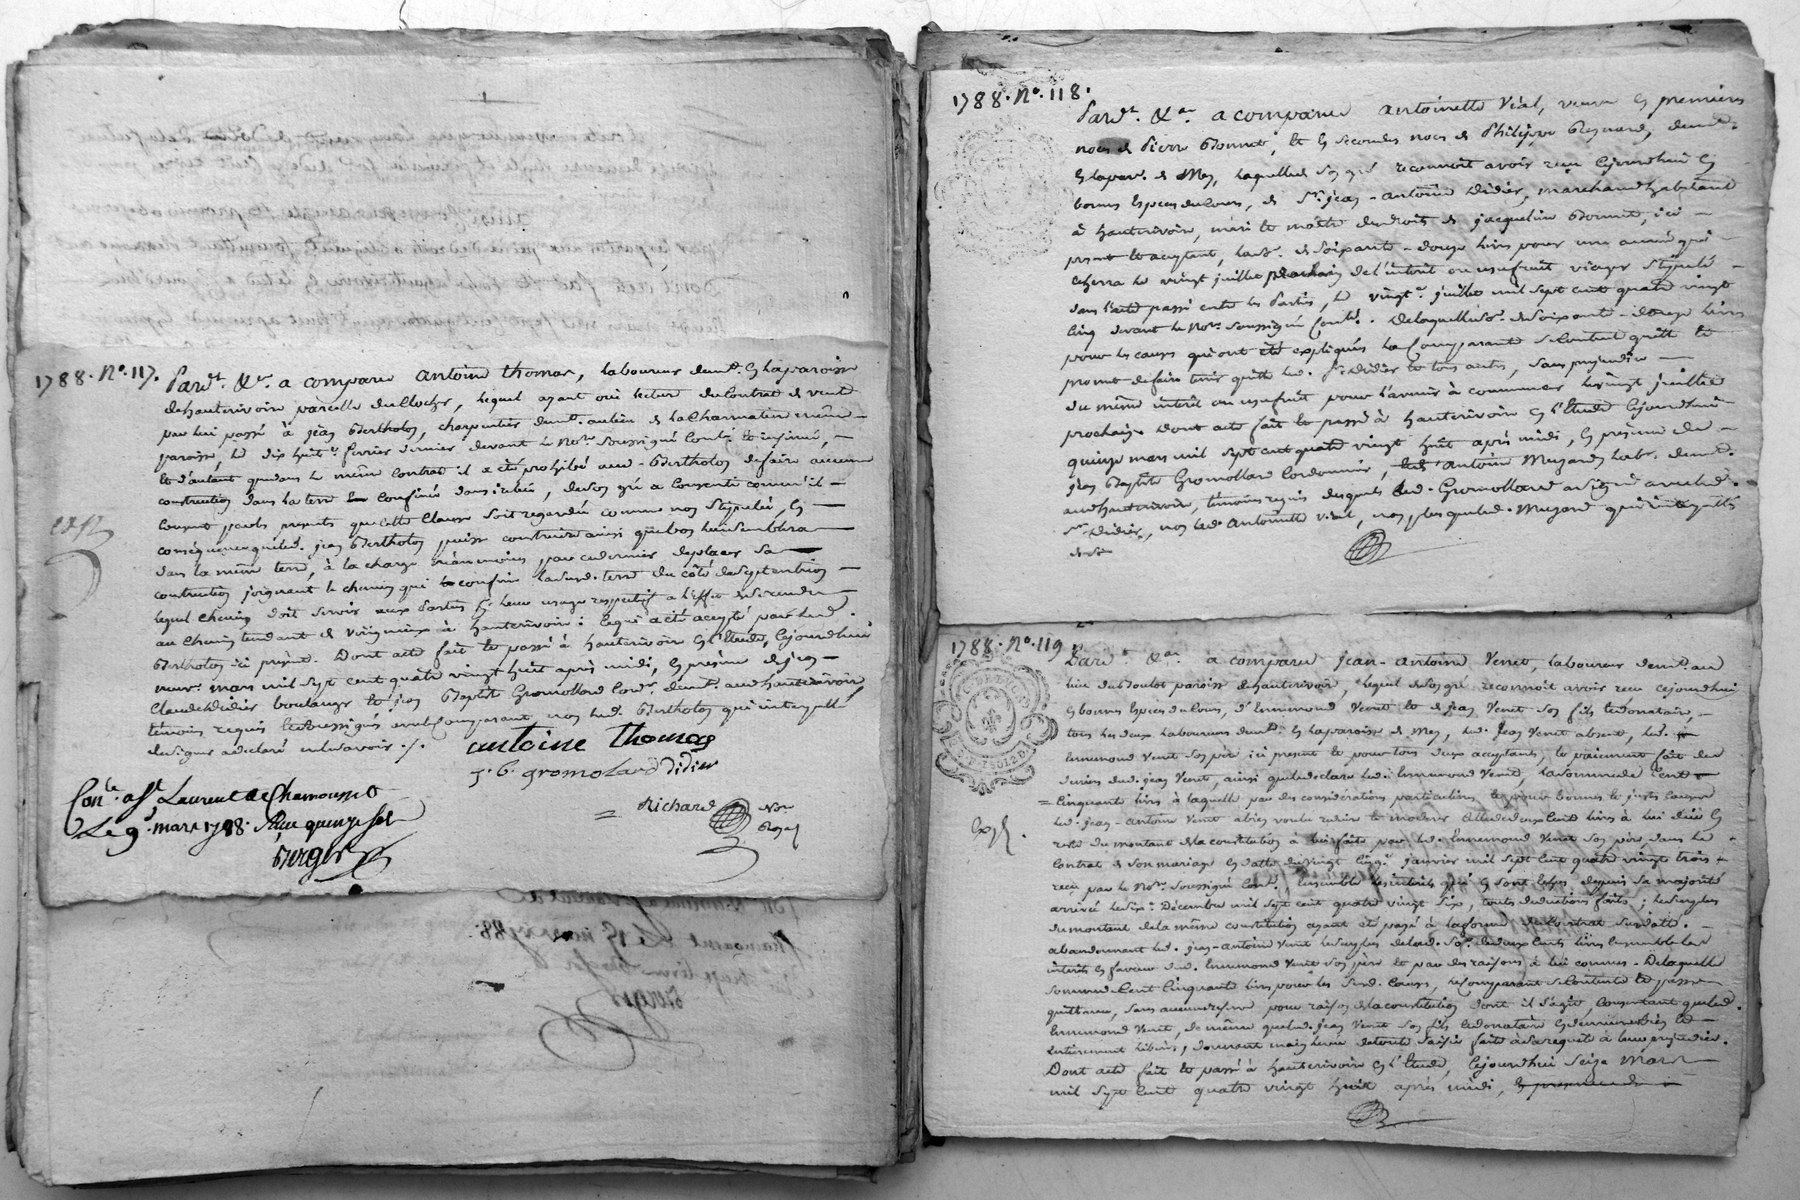 1788. N°. 117. Pard.t &.a a comparu antoine thomas, laboureur dem.t en la paroisse
de hauterivoire parcelle du Clocher, lequel ayant oui lecture du Contrat de vente
par lui passé à jean Bertholon, charpentier dem.t au lieu de la Charmatière même
paroisse, le dix huit.e fevrier dernier devant le No.re soussigné Contr.lé et insinué, —
et d'autant que dans le même contrat il a été prohibé aud. Bertholon de faire aucune
construction dans la terre confinée dans icelui, de son gré a consenti comme il —
consent par les presentes que cette clause soit regardée comme non stipulée, en —
conséquence que led. jean Bertholon puisse construire ainsi que bon lui semblera
dans la même terre, à la charge néanmoins par ce dernier de placer sa
construction joignant le chemin qui confine lasusd. terre du côté de Septentrion —
lequel chemin doit servir aux Parties p.r leur usage respectif a l'effet de se rendre
au chemin tendant de Viricelles à hauterivoire: ce qui a été accepté par led.
Bertholon ici présent. Dont acte fait et passé à hauterivoire en l'Etude, cejourd'hui
neuf mars mil sept cent quatre vingt huit après midi, en présence de jean —
Claude Didier boulanger et jean Baptiste Gromollard Cord.r dem.t aud. hauterivoire,
témoins requis soussignés avec le Comparant, non led. Bertholon qui interpellé
de signer a déclaré ne le savoir ./.
antoine thomas
J. B. gromolard Didier
Con.lé a S.t Laurent de Chamousset
Le 9. mars 1788. Reçu quinze sols
Berger
= Richard No.re
Royal
exp.
1788. N°. 118.
Pard.t &.a a comparu antoinette Vial, veuve en premières
noces de Pierre Bonnet, et en secondes noces de Philippe Reynard, dem.te
en la par. de Mey, laquelle de son gré reconnoit avoir reçu cejourd'hui en
bonnes espèces du cours, de S.r jean-antoine Didier, marchand habitant
à hauterivoire, mari et maître des droits de jacqueline Bonnet, ici —
present et acceptant, la so.e de soixante-douze livres pour une année qui
echerra le vingt juillet prochain de l'intérêt ou usufruit viager stipulé —
dans l'acte passé entre les Parties, le vingt.e juillet mil sept cent quatre vingt
cinq devant le No.re soussigné Contr.lé. De laquelle so.e de soixante-douze livres
pour les causes qui ont été expliquées la Comparante se contente quitte et
promet de faire tenir quitte led. S.r Didier et tous autres, sans préjudice —
du même intérêt ou usufruit pour l'avenir à commencer le vingt juillet
prochain. Dont acte fait et passé à hauterivoire en l'Etude cejourd'hui
quinze mars mil sept cent quatre vingt huit après midi, en présence de —
jean Baptiste Gromollard Cordonnier, antoine Muzard lab.r dem.t
aud. hauterivoire, témoins requis desquels led. Gromollard a signé avec led.
S.r Didier, non lad. antoinette Vial, non plus que led. Muzard qui interpellés
de
1788. N°. 119
Pard.t &.a a comparu jean-antoine Venet, laboureur dem.t au
lieu du Boulot paroisse de hauterivoire, lequel de son gré reconnoit avoir reçu cejourd'hui
en bonnes espèces du cours, d'Ennemond Venet et de jean Venet son fils et donataire, —
tous les deux laboureurs dem.t en la paroisse de Mey, led. jean Venet absent, led.
Ennemond Venet son père ici present et pour tous deux acceptant, le paiement fait des
deniers dud. jean Venet, ainsi que le declare led. Ennemond Venet, la somme de Cent
= Cinquante livres à laquelle par des considérations particulieres et pour bonnes et justes causes
led. jean-antoine Venet a bien voulu reduire et moderer celle de deux Cent livres à lui düe en
reste du montant de la constitution à lui faite par led. Ennemond Venet son père, dans le
Contrat de son mariage en datte du vingt cinq.e janvier mil sept cent quatre vingt trois
reçu par le No.re soussigné Contr.lé, ensemble les intérêts qui en sont echus depuis sa majorité
arrivée le six.e Décembre mil sept cent quatre vingt six, toutes déductions faites; le surplus
du montant de la même constitution ayant été payé à la forme du Contrat susdatté. —
abandonnant led. jean-antoine Venet le surplus de lad. so.e de deux cents livres ensemble les
intérêts en faveur dud. Ennemond Venet son père et par des raisons à lui connues. De laquelle
somme de Cent Cinquante livres pour les susd. causes, le Comparant se contente et passe
quittance, sans aucune reserve pour raison de la constitution dont il s'agit, Consentant que led.
Ennemond Venet, de même que led. jean Venet son fils et donataire en demeurent
entierement libérés, donnant main levée de toute saisie faite à sa requête à leur préjudice.
Dont acte fait et passé à hauterivoire en l'Etude, cejourd'hui seize Mars —
mil sept cent quatre vingt huit après midi, en présence de
Exp.